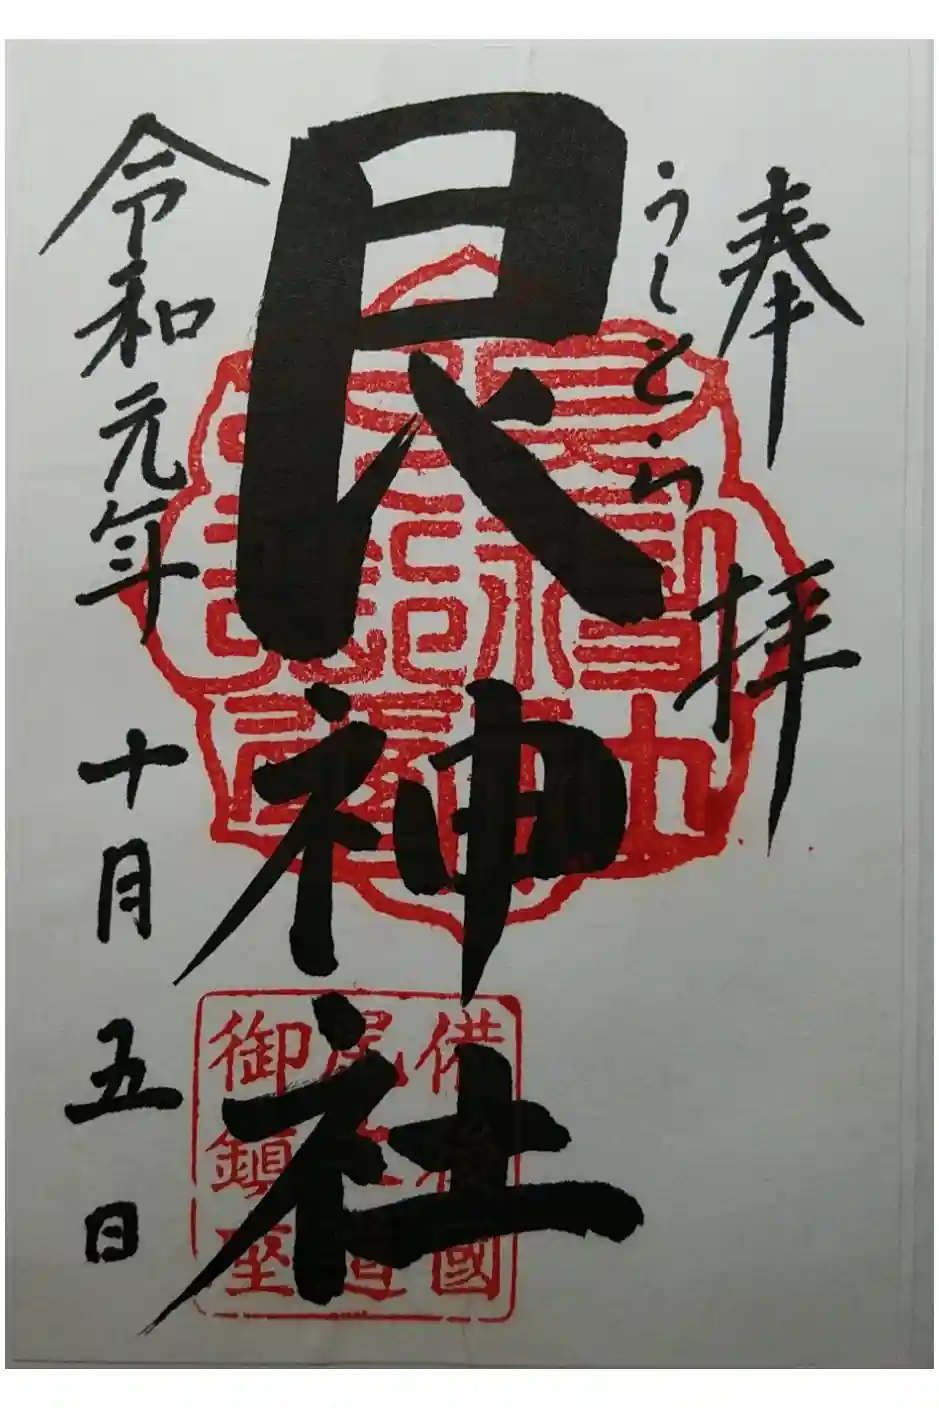 奉拝
うしとら
艮神社
令和元年十月五日
備後國
尾道
御鎮座